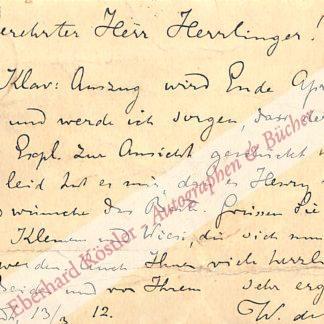 verehrter Herr Herrlinger!
Klav: Auszug wird Ende Apr
und werde ich sorgen, dass de
Expl. zur Ansicht geschickt w
leid tut es mir, dass es Henry
wünsche das Beste. Grüssen Sie
Klemen und Wiesi, die sich nun
werden, auch Ihnen viele herzl
Beide und von Ihrem sehr erg
13/3 12. W. de
Eberhard Köstler Autographen & Bücher